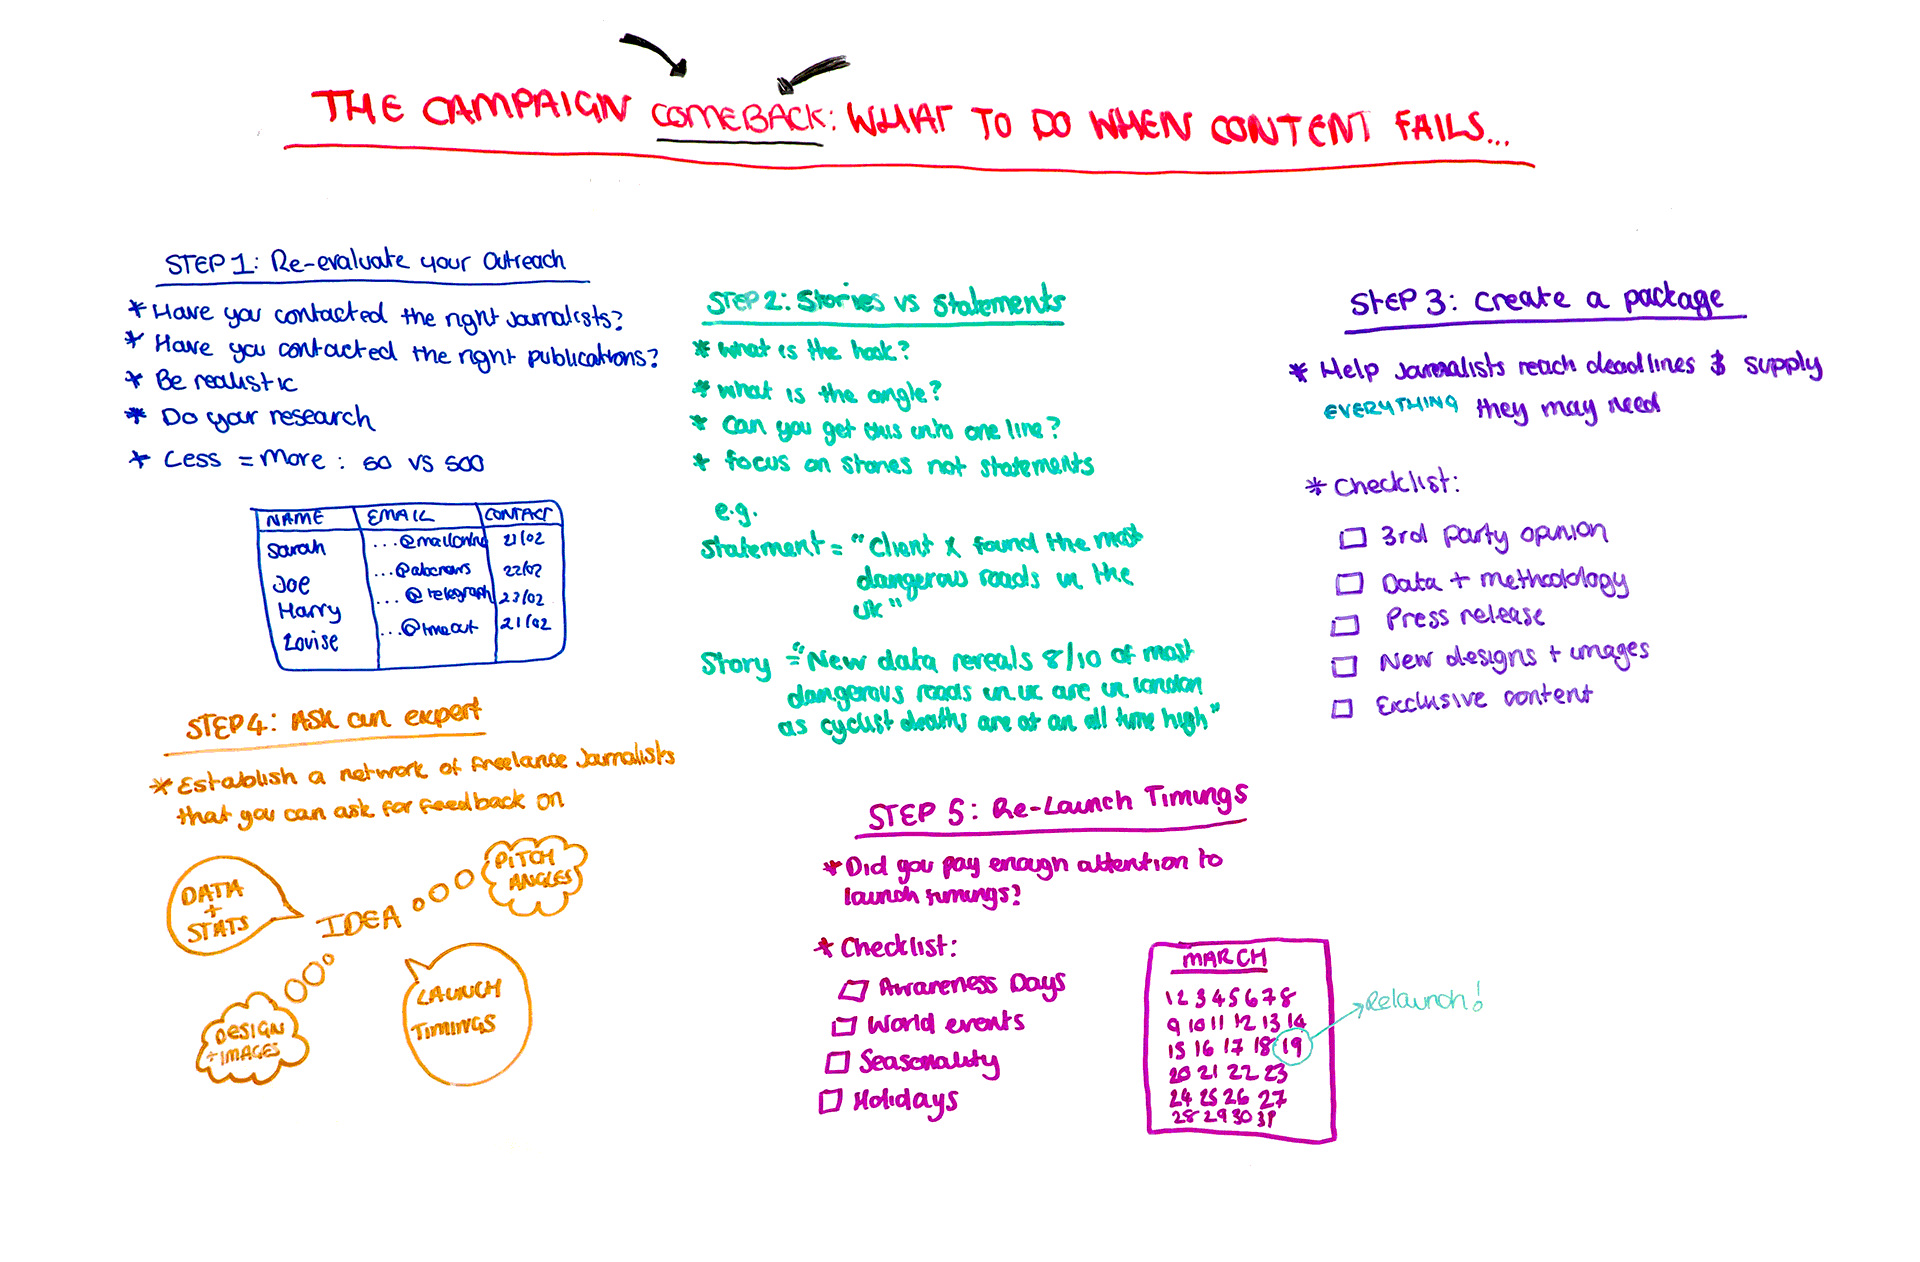 THE CAMPAIGN COMEBACK: WHAT TO DO WHEN CONTENT FAILS...
STEP 1: Re-evaluate your Outreach
* Have you contacted the right Journalists?
* Have you contacted the right publications?
* Be realistic
* Do your research
* Less = More: 50 vs 500
NAME EMAIL CONTACT
Sarah ...@mailonline 21/02
Joe ...@abcnews 22/02
Harry ...@telegraph 23/02
Louise ...@timeout 21/02
STEP 2: Stories vs Statements
* What is the hook?
* What is the angle?
* Can you get this into one line?
* focus on stories not statements
e.g.
Statement = "Client X found the most
dangerous roads in the
UK"
Story = "New data reveals 8/10 of most
dangerous roads in UK are in London
as cyclist deaths are at an all time high"
STEP 3: Create a package
* Help Journalists reach deadlines & supply
EVERYTHING they may need
* Checklist:
3rd party opinion
Data + methodology
Press release
New designs + images
Exclusive content
STEP 4: Ask an expert
* Establish a network of freelance Journalists
that you can ask for feedback on
DATA
+
STATS
IDEA
PITCH
ANGLES
DESIGN
+ IMAGES
LAUNCH
TIMINGS
STEP 5: Re-Launch Timings
* Did you pay enough attention to
launch timings?
* Checklist:
Awareness Days
World events
Seasonality
Holidays
MARCH
1 2 3 4 5 6 7 8
9 10 11 12 13 14
15 16 17 18 19
20 21 22 23
24 25 26 27
28 29 30 31
Relaunch!